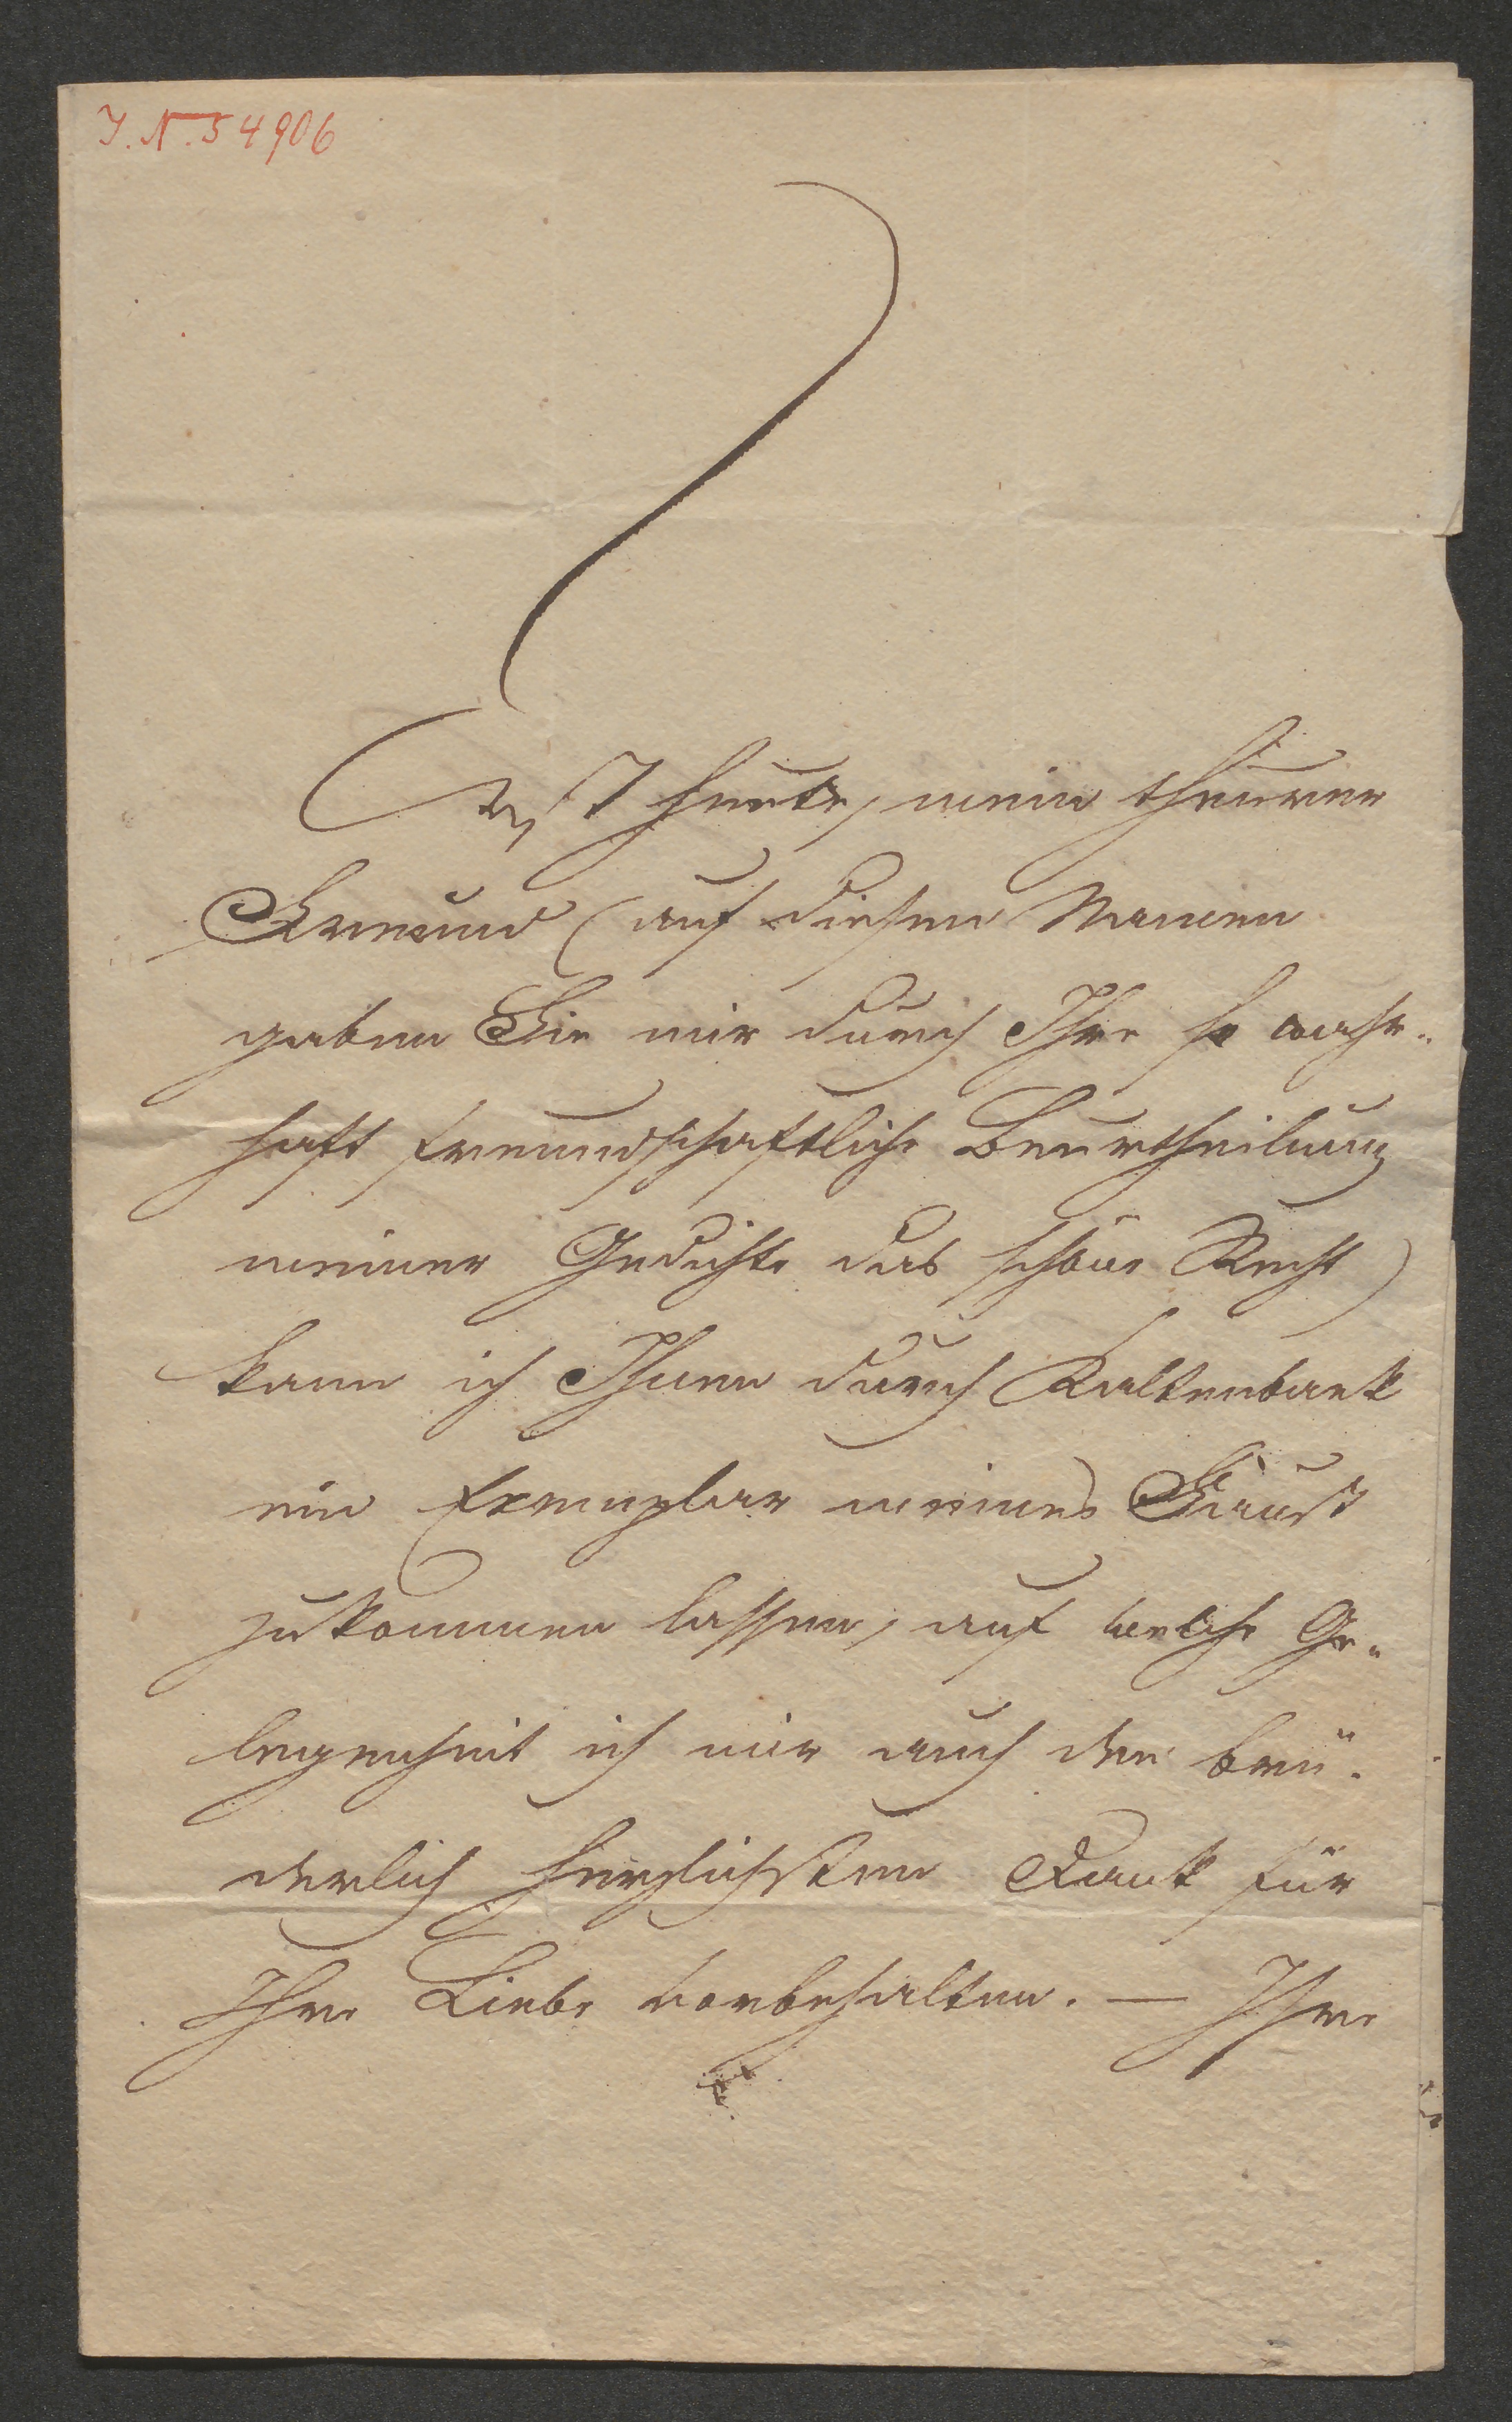 J. N. 54906
Erst heute, mein theurer
Freund (auf diesen Namen
gaben Sie mir durch Ihre so wahr-
haft freundschaftliche Beurtheilung
meiner Gedichte das schöne Recht)
kann ich Ihnen durch Kaltenbaek
ein Exemplar meines Faust
zukommen lassen, auf welche Ge-
legenheit ich mir auch den brü-
derlich herzlichsten Dank für
Ihre Liebe vorbehalten. — Ihre